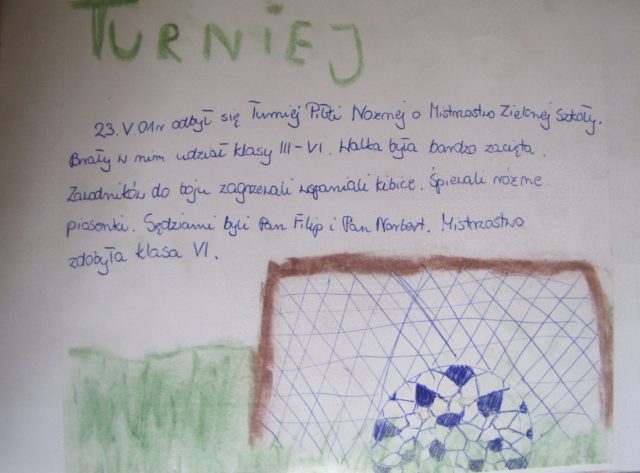 TURNIEJ
23.V.01r odbył się Turniej Piłki Nożnej o Mistrzostwo Zielonej Szkoły.
Brały w nim udział klasy III-VI. Walka była bardzo zacięta.
Zawodników do boju zagrzewali wspaniali kibice. Śpiewali różne
piosenki. Sędziami byli Pan Filip i Pan Norbert. Mistrzostwo
zdobyła klasa VI.